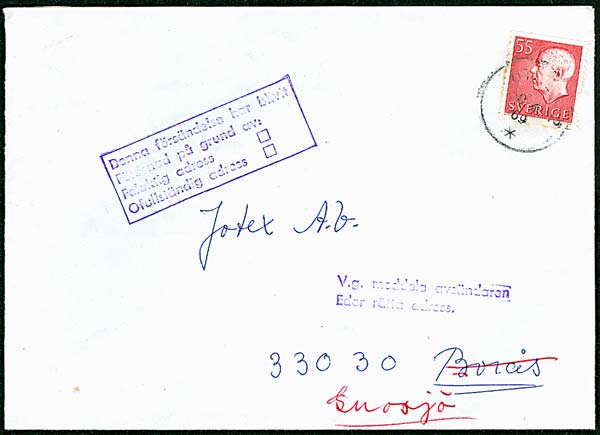 55
SVERIGE
69
Denna försändelse har blivit
försenad på grund av:
Felaktig adress
Ofullständig adress
Jotex A.b.
V.g. meddela avsändaren
Eder rätta adress.
33030 Borås
Gnosjö